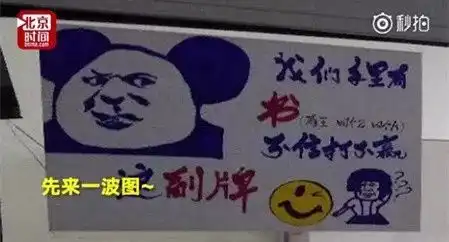 北京时间
btime.com
秒拍
我们手里有
书
不信打不赢
这副牌
先来一波图~